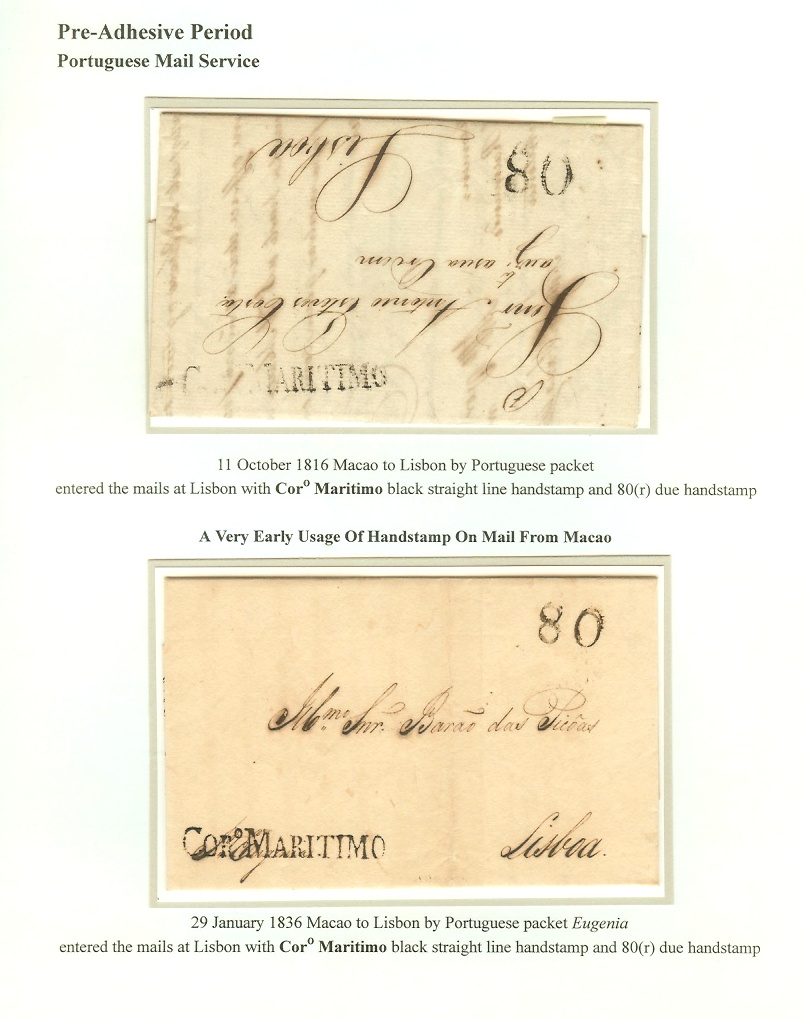 Pre-Adhesive Period
Portuguese Mail Service
80
Lisboa
Snr. Antonio Esteves Costa
MARITIMO
11 October 1816 Macao to Lisbon by Portuguese packet
entered the mails at Lisbon with Corº Maritimo black straight line handstamp and 80(r) due handstamp
A Very Early Usage Of Handstamp On Mail From Macao
80
Illmo. Snr. Barão das Picoas
CorºMARITIMO
Lisboa.
29 January 1836 Macao to Lisbon by Portuguese packet Eugenia
entered the mails at Lisbon with Corº Maritimo black straight line handstamp and 80(r) due handstamp